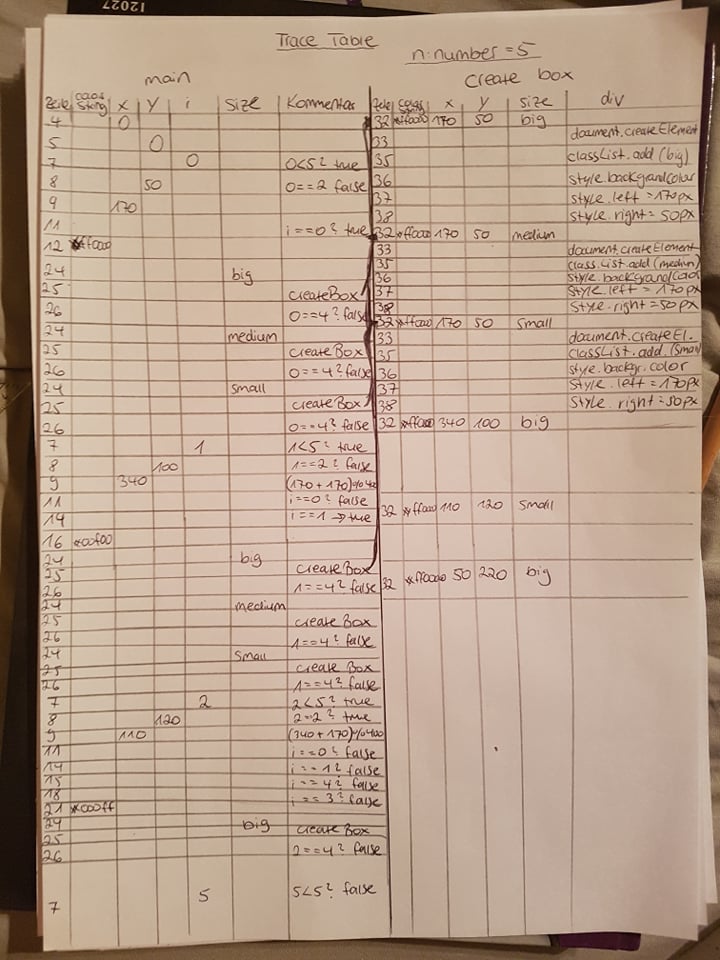 12027
Trace Table
n: number = 5
main
create box
Zeile color string x y i size Kommentar
4 0
5 0
7 0 0<5? true
8 50 0==2 false
9 170
11 i==0? true
12 #ff0000
24 big
25 createBox
26 0==4? false
24 medium
25 createBox
26 0==4? false
24 small
25 createBox
26 0==4? false
7 1 1<5? true
8 100 1==2? false
9 340 (170+170)%400
11 i==0? false
14 i==1 → true
16 #00ff00
24 big
25 createBox
26 1==4? false
24 medium
25 createBox
26 1==4? false
24 small
25 createBox
26 1==4? false
7 2 2<5? true
8 120 2==2? true
9 110 (340+170)%400
11 i==0? false
14 i==1? false
15 i==4? false
18 i==3? false
21 #0000ff
24 big createBox
25
26 2==4? false
7 5 5<5? false
Zeile color string x y size div
32 #ff0000 170 50 big
33 document.createElement
35 classList.add (big)
36 style.backgrandcolour
37 style.left = 170px
38 style.right = 50px
32 #ff0000 170 50 medium
33 document.createElement
35 class.List.add (medium)
36 style.backgrandcolor
37 style.left = 170px
38 style.right = 50px
32 #ff0000 170 50 small
33 document.createEl.
35 classList.add (small
36 style.backgr.color
37 style.left = 170px
38 style.right = 50px
32 #ff0000 340 100 big
32 #ff0000 110 120 small
32 #ff0000 50 220 big